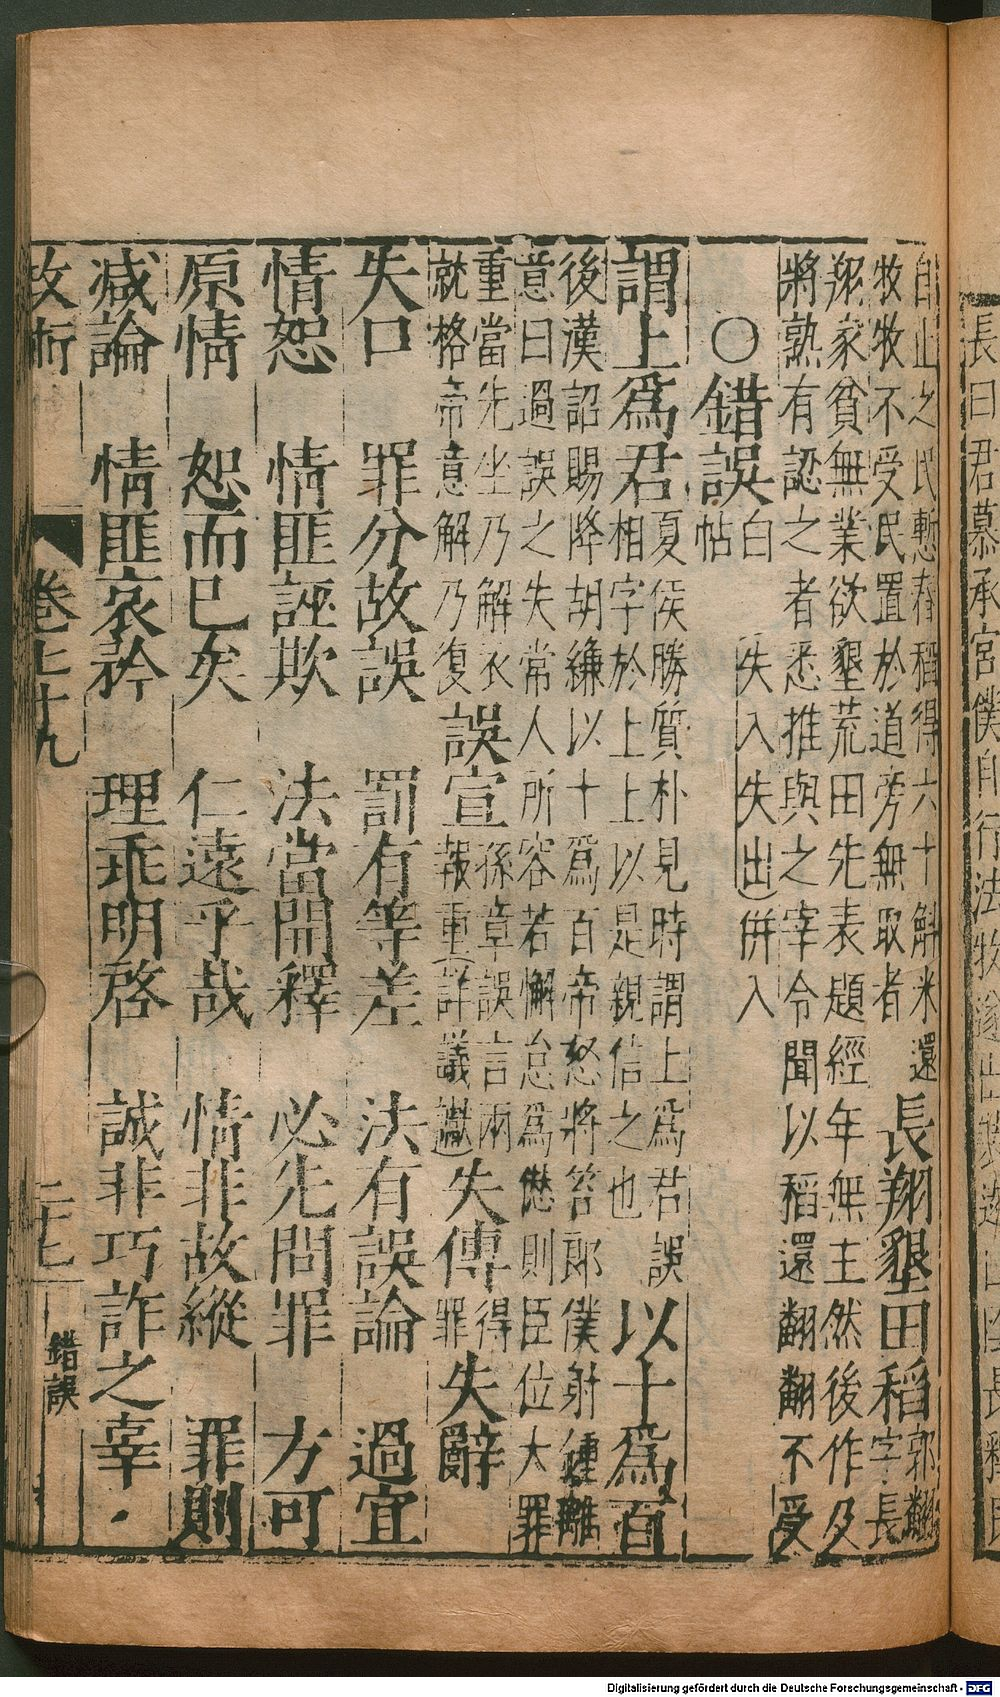 自止之民慙舂稻得六十斛米還長翔墾田稻郭翻字長
牧牧不受民置於道旁無取者
翔家貧無業欲墾荒田先表題經年無主然後作及
將熟有認之者悉推與之宰令聞以稻還翻翻不受
○錯誤白帖 失入失出併入
謂上爲君夏侯勝質朴見時謂上爲君誤相字於上上以是親信之也以十爲百
後漢詔賜降胡縑以十爲百帝怒將笞郎僕射鍾離
意曰過誤之失常人所容若懈怠爲愆則臣位大罪
重當先坐乃解衣
就格帝意解乃復誤宣孫章誤言兩報重詳議讞失傳得罪失辭
失口 罪分故誤 罰有等差 法有誤論 過宜
情恕 情匪誣欺 法當開釋 必先問罪 方可
原情 恕而已矣 仁遠乎哉 情非故縱 罪則
減論 情匪哀矜 理乖明啓 誠非巧詐之辜
攻術
卷七十九
二十七
錯誤
長曰君慕承宮僕
行法牧遂
Digitalisierung gefördert durch die Deutsche Forschungsgemeinschaft - DFG